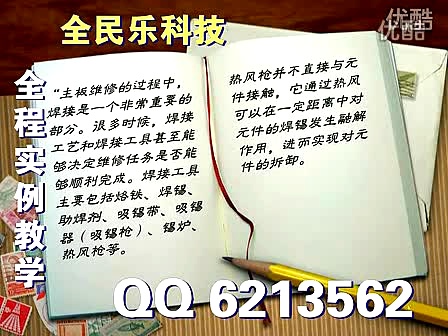 全民乐科技
优酷
优酷
全程实例教学
“主板维修的过程中,
焊接是一个非常重要的
部分。很多时候,焊接
工艺和焊接工具甚至能
够决定维修任务是否能
够顺利完成。焊接工具
主要包括烙铁、焊锡、
助焊剂、吸锡带、吸锡
器(吸锡枪)、锡炉、
热风枪等。
热风枪并不直接与元
件接触,它通过热风
可以在一定距离中对
元件的焊锡发生融解
作用,进而实现对元
件的拆卸。
QQ 6213562